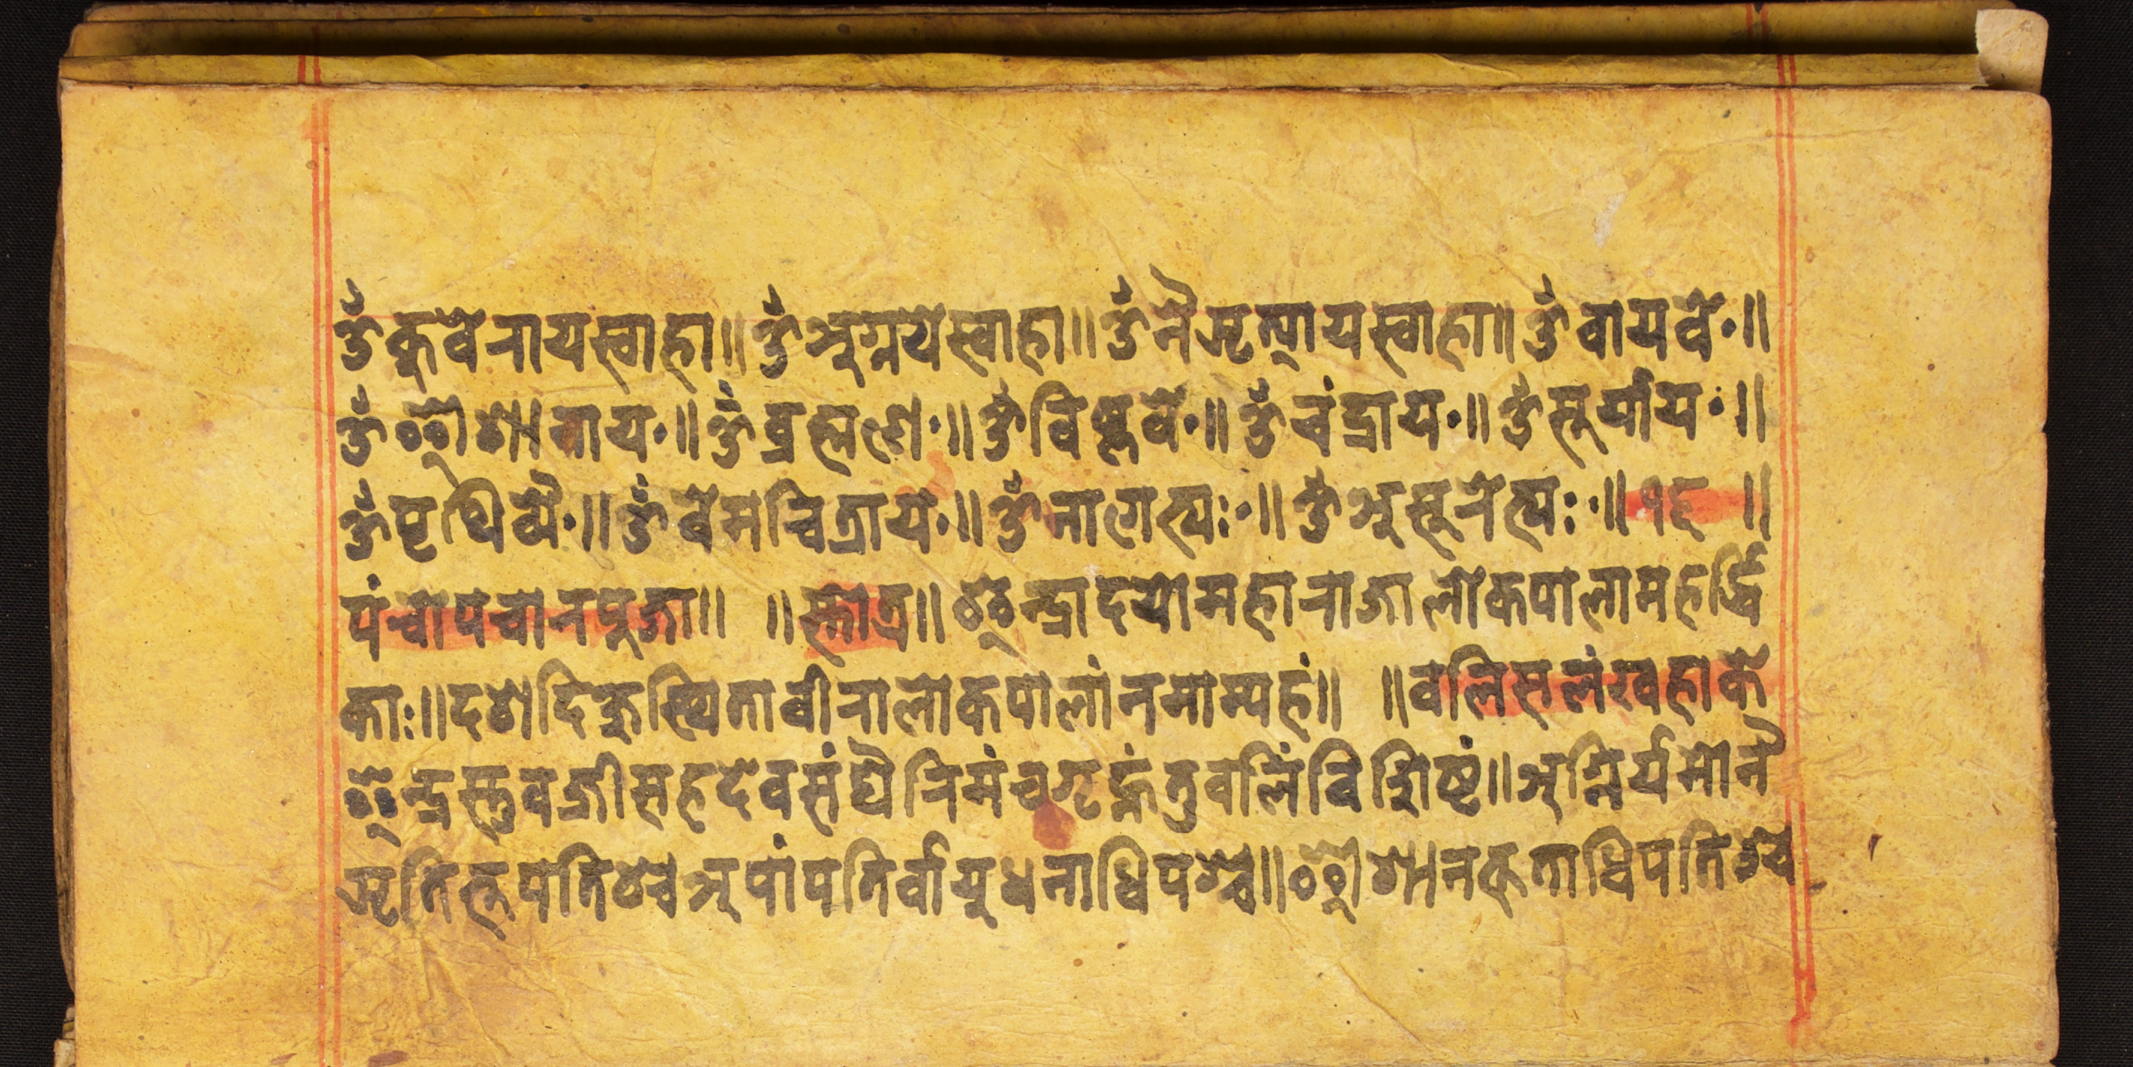 ॐ कुवेराय स्वाहा॥ ॐ अग्नये स्वाहा॥ ॐ नैऋत्याय स्वाहा॥ ॐ वायवे॰॥
ॐ ईशानाय॰॥ ॐ व्रह्मणे॰॥ ॐ विष्णवे॰॥ ॐ चंद्राय॰॥ ॐ सूर्याय॰॥
ॐ पृथिव्यै॰॥ ॐ वेमचित्राय॰॥ ॐ नागेभ्यः॰॥ ॐ असूरेभ्यः॰॥ १६॥
पंचोपचारपूजा॥ ॥स्तोत्र॥ इन्द्रादयो महाराजा लोकपाला महर्द्धि
काः॥ दशदिक्षु स्थिता वीरा लोकपालां नमाम्यहं॥ ॥वलिस लंख हाके
इन्द्रस्तु वज्री सह देवसंघै रिमं च गृह्णंतु वलिं विशिष्टं॥ अग्निर्यमो नै
ऋति भूपतिश्च अपांपतिर्वायुधनाधिपश्च॥ ईशानभूताधिपतिश्च